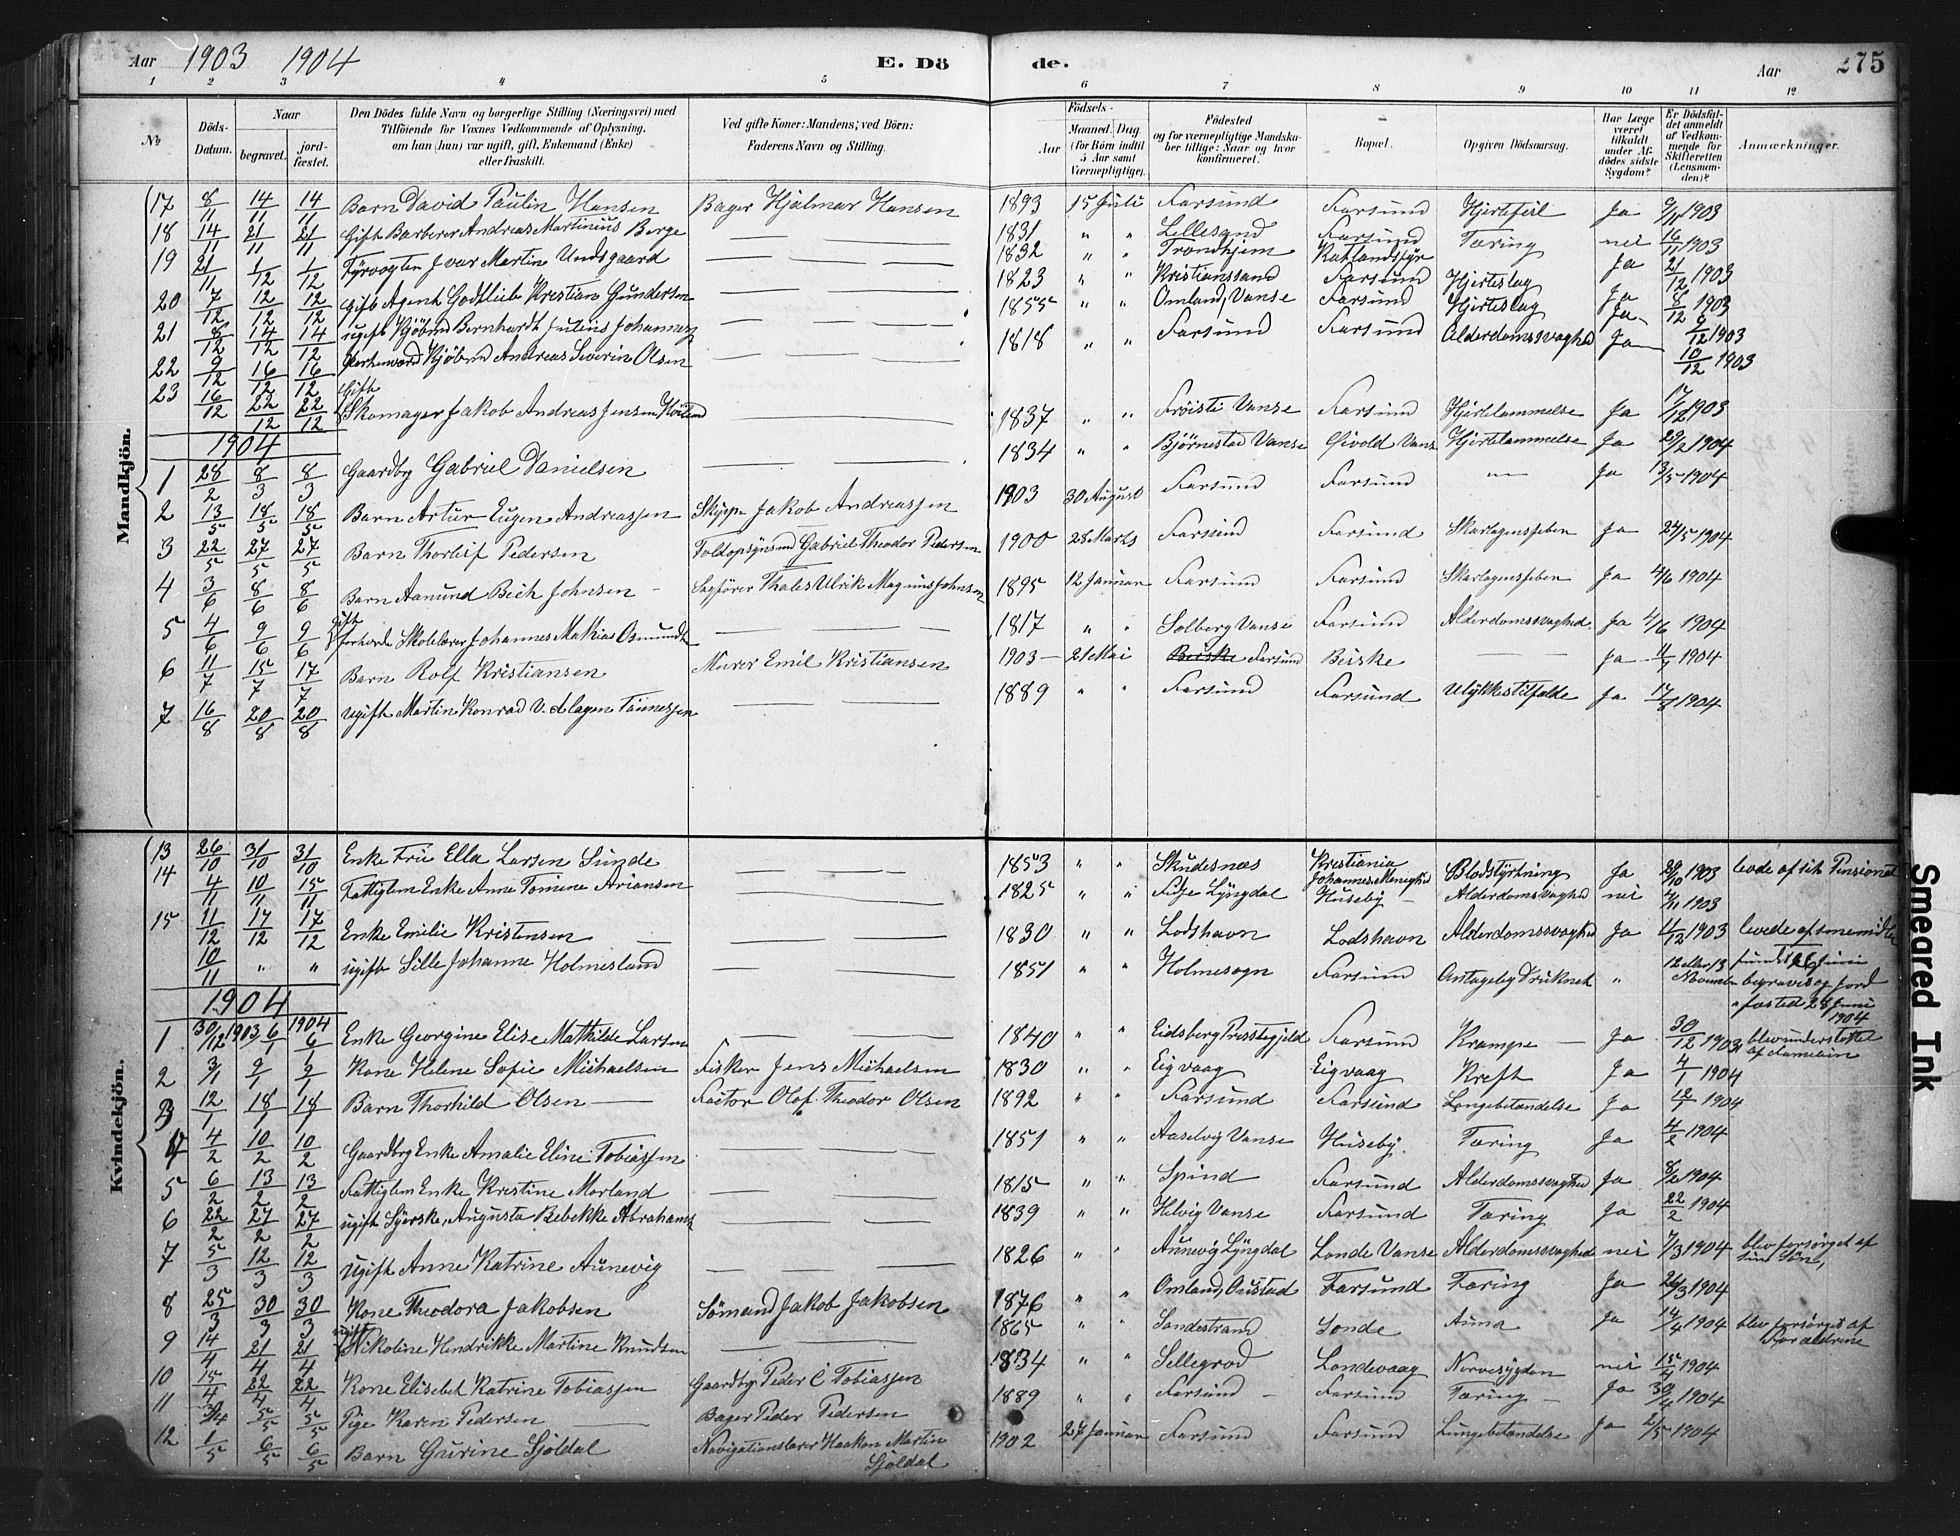 Aar 1903 1904 E. Dö de. Aar 275
1 2 3 4 5 6 7 8 9 10 11 12
№
Döds-Datum.
Naar
begravet.
jordfæstet.
Den Dödes fulde Navn og borgerlige Stilling (Næringsvei) med
Tilföiende for Voxnes Vedkommende af Oplysning,
om han (hun) var ugift, gift, Enkemand (Enke)
eller fraskilt.
Ved gifte Koner: Mandens; ved Börn:
Faderens Navn og Stilling.
Födsels-
Aar
Maaned. Dag
(for Börn indtil
5 Aar samt
Værnepligtige).
Födested
og for værnepligtige Mandskaber tillige: Naar og hvor
konfirmeret.
Bopæl.
Opgiven Dödsaarsag.
Har Læge
været
tilkaldt
under Afdödes sidste
Sygdom?
Er Dödsfaldet anmeldt
af Vedkommende for
Skifteretten
(Lensmanden)?
Anmærkninger.
Mandkjön.
17 8/11 14/11 14/11 Barn David Paulin Hansen Bager Hjalmar Hansen 1893 15 Juli Farsund Farsund Hjertefeil Ja 9/11 1903
18 14/11 21/11 21/11 Gift Barberer Andreas Martinius Berge 1831 " " Lillesand Farsund Tæring nei 16/11 1903
19 21/11 1/12 1/12 Fyrvogten Ivar Martin Undsgaard 1832 " " Trondhjem Katlandsfyr Ja 21/12 1903
20 7/12 12/12 12/12 Gift Agent Godtlieb Kristian Gundersen 1823 " " Kristianssand Farsund Hjerteslag Ja 8/12 1903
21 8/12 14/12 14/12 ugift Kjöbmd Bernhardt Julius Johannesen 1855 " " Omland, Vanse Farsund Hjerteslag Ja 1903
22 9/12 16/12 16/12 Kjöbmd Andreas Severin Olsen 1818 " " Farsund Farsund Alderdomssvaghed Ja 10/12 1903
23 16/12 22/12 22/12 Gift Skomager Jakob Andreas Jensen 1837 " " Fröisti Vanse Farsund Hjertelammelse Ja 17/12 1903
1904
1 28/2 8/3 8/3 Gaardbr Gabriel Danielsen 1834 " " Björnestad Vanse Vanse Hjertelammelse Ja 29/2 1904
2 13/5 18/5 18/5 Barn Artur Eugen Andreassen Skipper Jakob Andreassen 1903 30 August Farsund Farsund Ja 13/5 1904
3 22/5 27/5 27/5 Barn Thorleif Pedersen Toldopsynsmd Gabriel Theodor Pedersen 1900 28 Marts Farsund Farsund Skarlagensfeber Ja 24/5 1904
4 3/6 8/6 8/6 Barn Aamund Bech Johnsen Sagförer Thales Ulrik Magnus Johnsen 1895 12 Januar Farsund Farsund Skarlagensfeber Ja 4/6 1904
5 4/6 9/6 9/6 gift forhende Skolelærer Johannes Mathias Osmundsen 1817 " " Solberg Vanse Farsund Alderdomssvaghed. Ja 4/6 1904
6 11/7 15/7 17/7 Barn Rolf Kristiansen Murer Emil Kristiansen 1903 21 Mai Beiske Farsund Beiske Ja 11/7 1904
7 16/8 20/8 20/8 ugift Martin Konrad v. d. Lagen Tönnessen 1889 " " Farsund Farsund Ulykkestilfælde Ja 17/8 1904
Kvindekjön.
13 26/10 31/10 31/10 Enke Frue Ella Larsen Sunde 1853 " " Skudesnæs Kristiania Blodstyrtning Ja 29/10 1903 levde af sit Pensionat
14 4/11 10/11 15/11 Fattiglem Enke Anne Tomine Ariansen 1825 " " Lyngdal Johannes Menighed Huseby Alderdomssvaghed nei 4/11 1903
15 11/12 17/12 17/12 Enke Emilie Kristensen 1830 " " Lodshavn Lodshavn Alderdomssvaghed Ja 11/12 1903 levede af sine midler
10/11 " " ugift Sille Johanne Holmesland 1851 " " Holmesogn Farsund Antagelig Druknet " 12 November fundet 26 Juni begravet og jordfæsted 28 Juni 1904
1904
1 30/12 1903 6/1 1904 6/1 Enke Georgine Elise Mathilde Larsen 1840 " " Eidsberg Præstegjeld Farsund Krampe Ja 30/12 1903 blev understøttet af
2 3/1 9/1 9/1 Kone Helene Sofie Michaelsen Fisker Jens Michaelsen 1830 " " Eigvaag Eigvaag Kreft Ja 4/1 1904
3 12/1 18/1 18/1 Barn Thorhild Olsen Factor Olof Theodor Olsen 1892 " " Farsund Farsund Lungebetændelse Ja 12/1 1904
4 4/2 10/2 10/2 Gaardbr Enke Amalie Eline Tobiassen 1851 " " Aaselvig Vanse Huseby Tæring Ja 4/2 1904
5 6/2 13/2 13/2 Fattiglem Enke Kristine Morland 1815 " " Spind Farsund Alderdomssvaghed Ja 8/2 1904
6 22/2 27/2 27/2 ugift Syerske Augusta Rebekke Abrahams 1839 " " Helvig Vanse Farsund Tæring Ja 22/2 1904
7 5/3 12/3 12/3 ugift Anne Katrine Aunevig 1826 " " Aunevig Lyngdal Londe Vanse Alderdomssvaghed nei 7/3 1904 blev forsörget af sine Sön,
8 25/3 30/3 30/3 Kone Theodora Jakobsen Sömand Jakob Jakobsen 1876 " " Omland, Farsund Tæring Ja 26/3 1904
9 14/4 21/4 21/4 ugift Nikoline Hendrikke Martine Knudsen 1865 " " Sandestrand Londe Ja 14/4 1904 blev forsörget af Forældrene
10 15/4 22/4 22/4 Kone Elisabet Katrine Tobiassen Gaardbr Peder C Tobiassen 1834 " " Sellegrod Londevaag Nervesygdom nei 15/4 1904
11 30/4 5/5 5/5 Pige Karen Pedersen Bager Peder Pedersen 1889 " " Farsund Farsund Tæring Ja 30/4 1904
12 1/5 6/5 6/5 Barn Gurine Sjöldal Navigationslærer Haakon Martin Sjöldal 1902 27 Januar Farsund Farsund Lungebetændelse Ja 2/5 1904
Smeared Ink